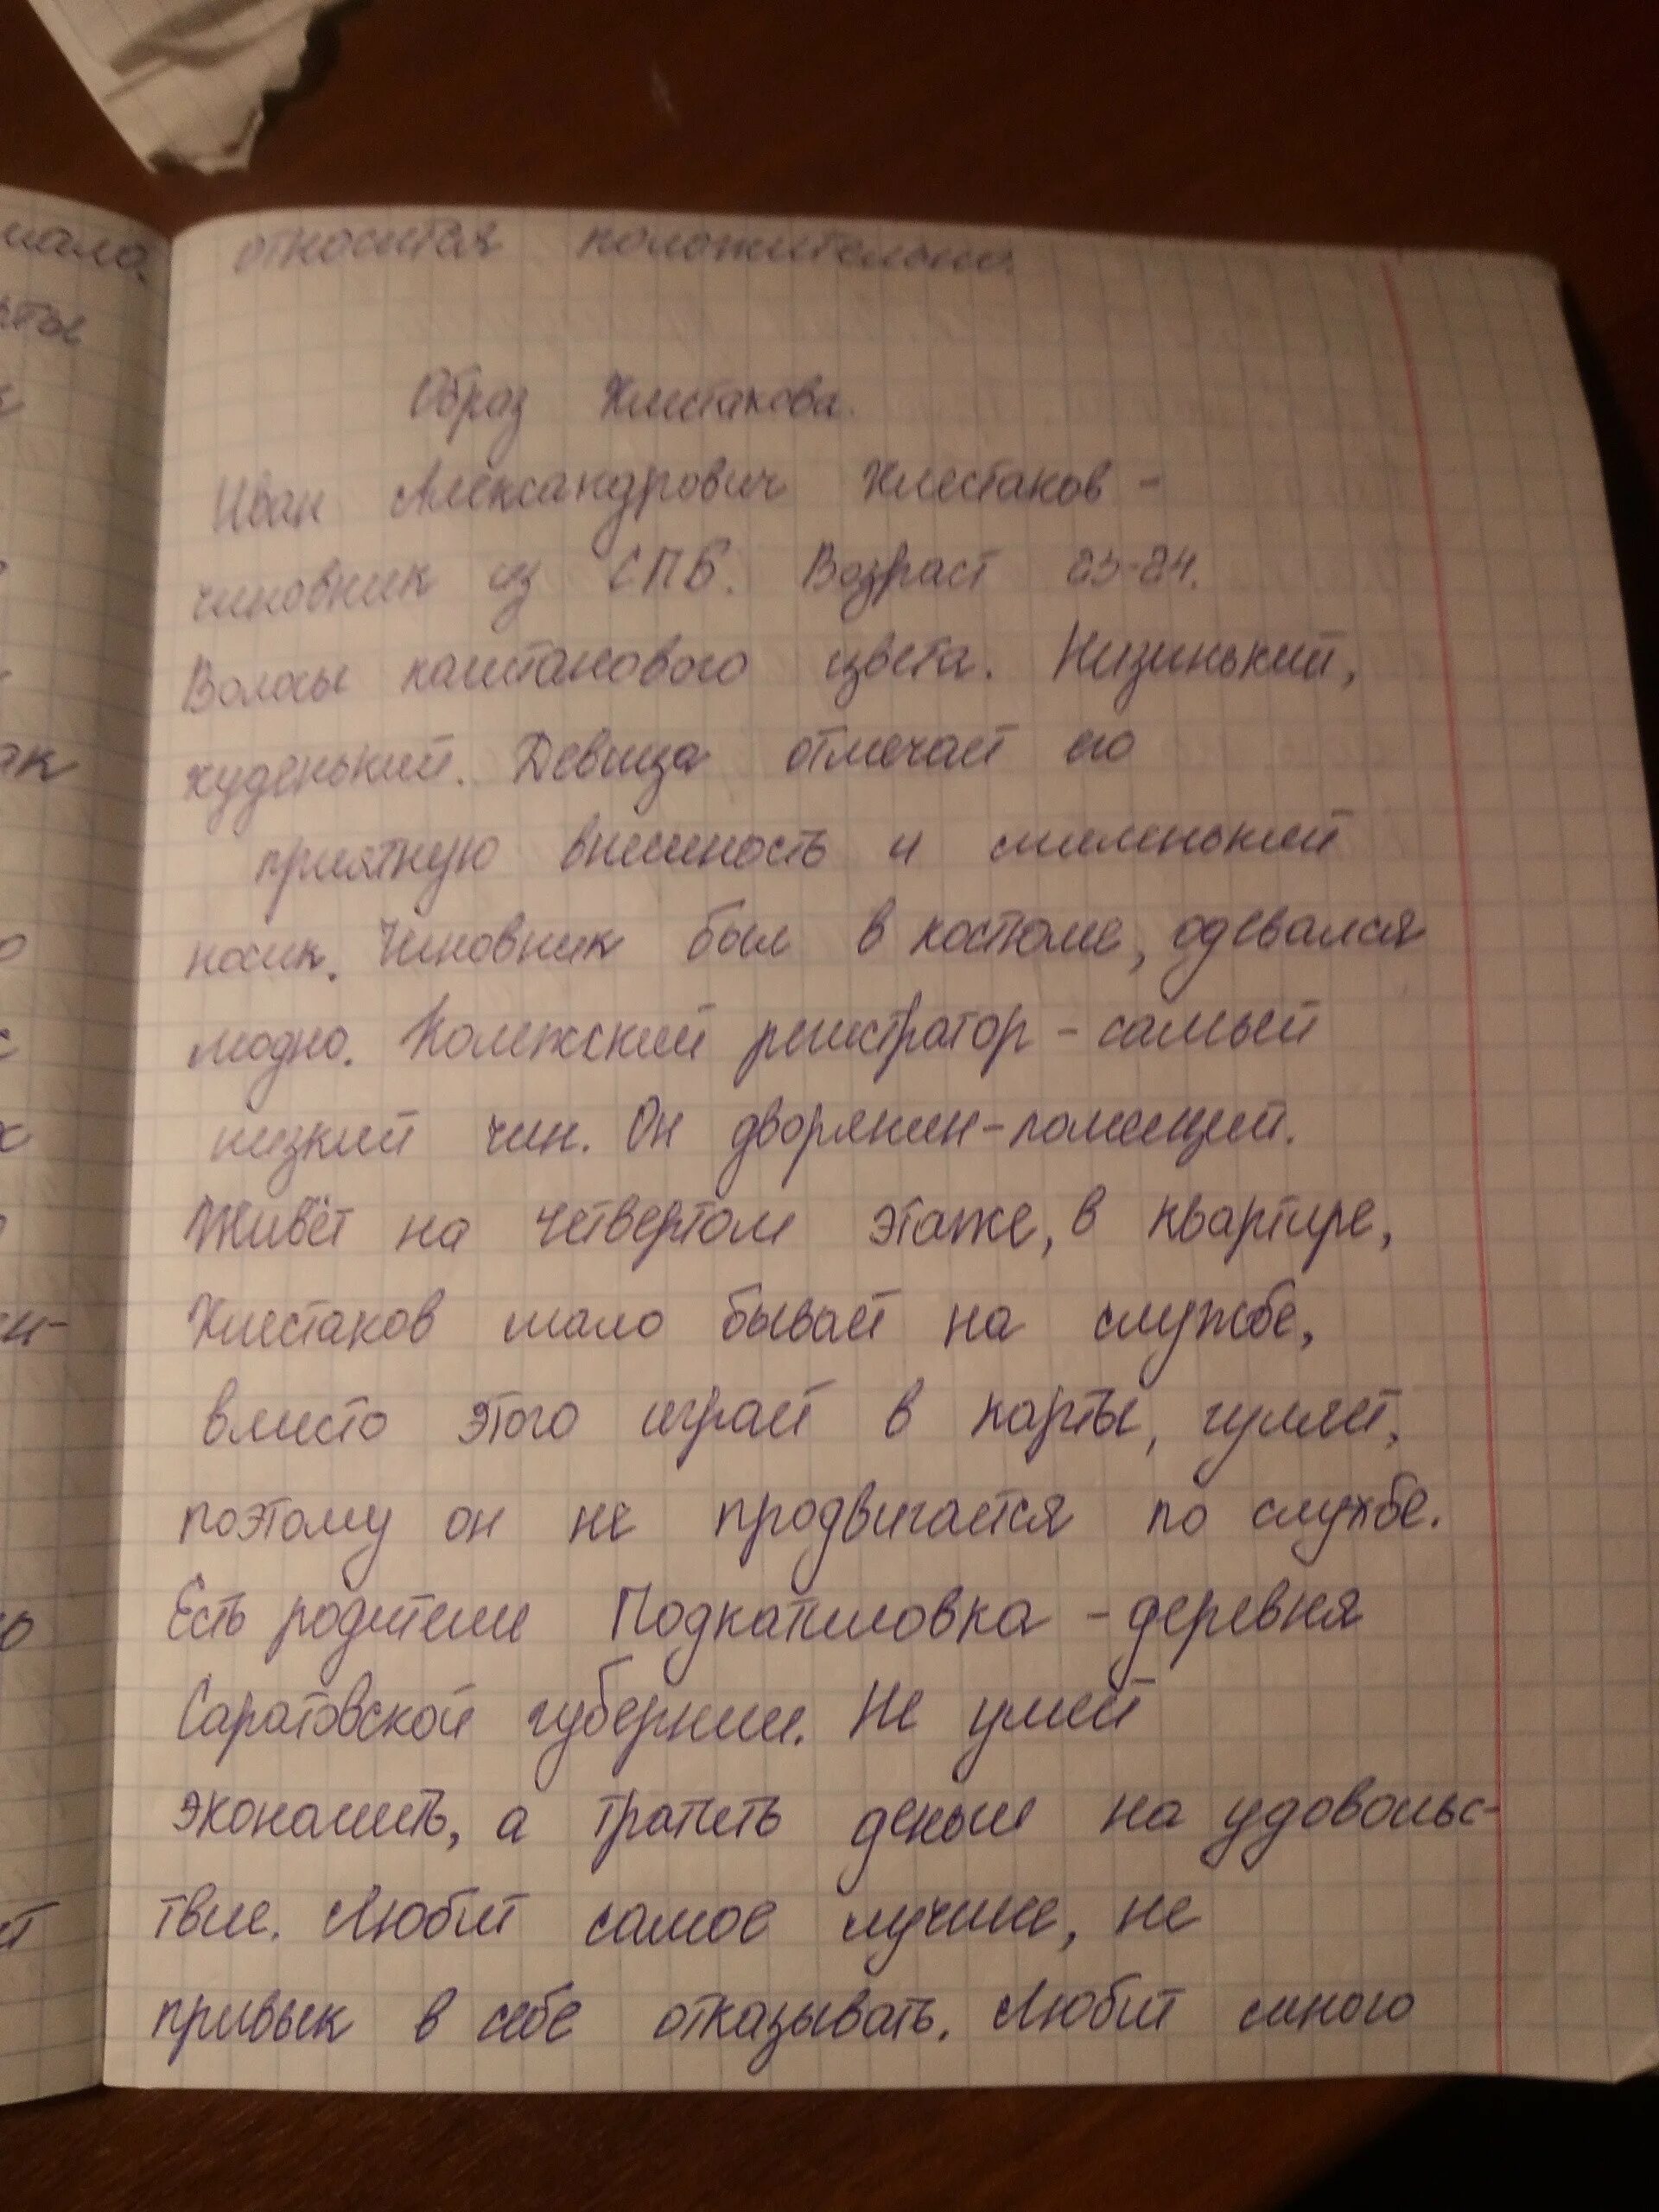 относится положительно.
Образ Хлестакова.
Иван Александрович Хлестаков -
чиновник из СПБ. Возраст 23-24.
Волосы каштанового цвета. Низинький,
худенький. Девица отмечает его
приятную внешность и миленький
носик. Чиновник был в костюме, одевался
модно. Колежский регистратор - самый
низкий чин. Он дворянин-помещий.
Живёт на четвертом этаже, в квартире,
Хлестаков мало бывает на службе,
вместо этого играет в карты, гуляет,
поэтому он не продвигается по службе.
Есть родители Подкатиловка - деревня
Саратовской губернии. Не умеет
экономить, а тратить деньги на удовольс-
твие. Любит самое лучшее, не
привык в себе отказывать. Любит много